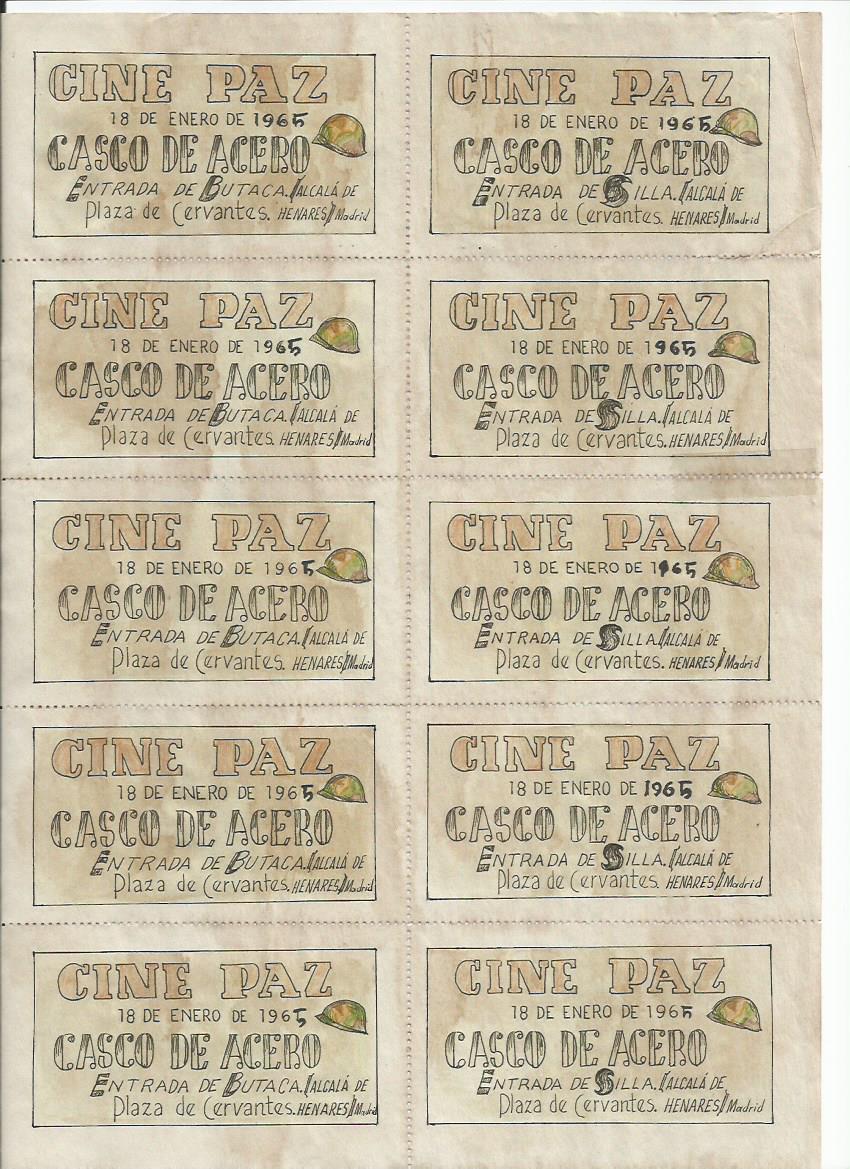 CINE PAZ
18 DE ENERO DE 1965
CASCO DE ACERO
ENTRADA DE BUTACA. ALCALÁ DE
Plaza de Cervantes. HENARES Madrid
CINE PAZ
18 DE ENERO DE 1965
CASCO DE ACERO
ENTRADA DE SILLA. ALCALÁ DE
Plaza de Cervantes. HENARES Madrid
CINE PAZ
18 DE ENERO DE 1965
CASCO DE ACERO
ENTRADA DE BUTACA. ALCALÁ DE
Plaza de Cervantes. HENARES Madrid
CINE PAZ
18 DE ENERO DE 1965
CASCO DE ACERO
ENTRADA DE SILLA. ALCALÁ DE
Plaza de Cervantes. HENARES Madrid
CINE PAZ
18 DE ENERO DE 1965
CASCO DE ACERO
ENTRADA DE BUTACA. ALCALÁ DE
Plaza de Cervantes. HENARES Madrid
CINE PAZ
18 DE ENERO DE 1965
CASCO DE ACERO
ENTRADA DE SILLA. ALCALÁ DE
Plaza de Cervantes. HENARES Madrid
CINE PAZ
18 DE ENERO DE 1965
CASCO DE ACERO
ENTRADA DE BUTACA. ALCALÁ DE
Plaza de Cervantes. HENARES Madrid
CINE PAZ
18 DE ENERO DE 1965
CASCO DE ACERO
ENTRADA DE SILLA. ALCALÁ DE
Plaza de Cervantes. HENARES Madrid
CINE PAZ
18 DE ENERO DE 1965
CASCO DE ACERO
ENTRADA DE BUTACA. ALCALÁ DE
Plaza de Cervantes. HENARES Madrid
CINE PAZ
18 DE ENERO DE 1965
CASCO DE ACERO
ENTRADA DE SILLA. ALCALÁ DE
Plaza de Cervantes. HENARES Madrid